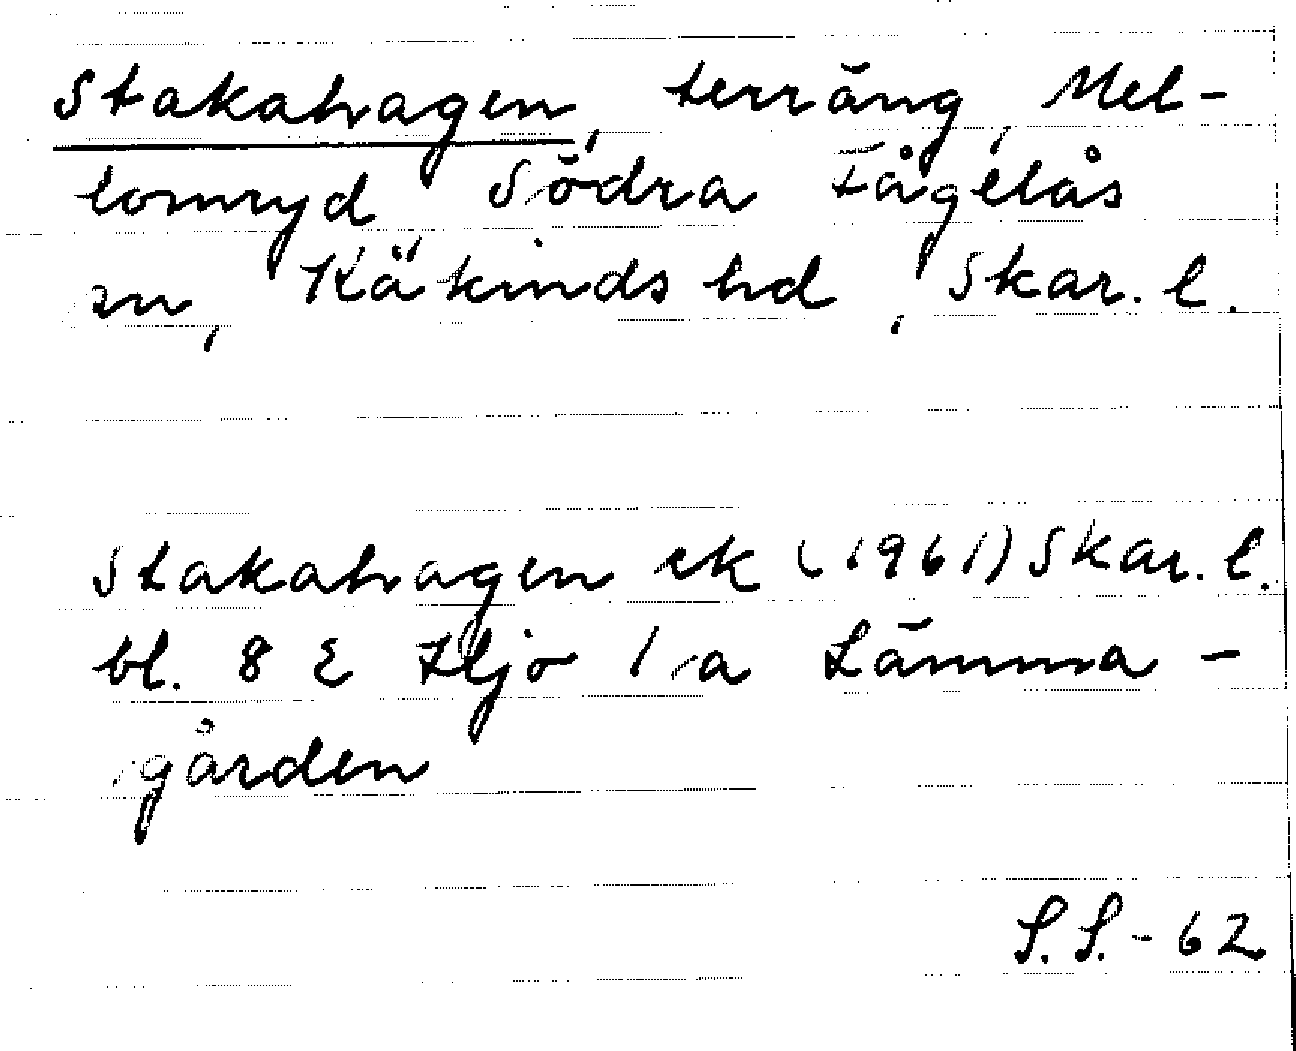 Stakahagen, terräng, Mel-
lomryd, Södra Fågelås
sn, Käkinds hd, Skar. l.
Stakahagen ek (1961) Skar. l.
bl. 8 E Hjo 1 a Lämma-
gården
S.S.-62